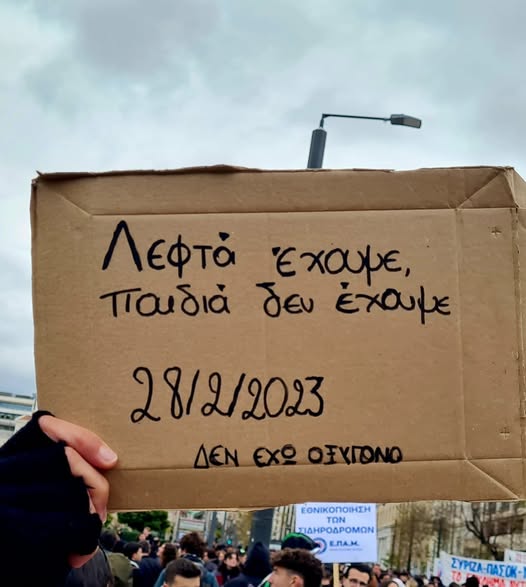 Λεφτά έχουμε,
παιδιά δεν έχουμε
28/2/2023
ΔΕΝ ΕΧΩ ΟΞΥΓΟΝΟ
ΕΘΝΙΚΟΠΟΙΗΣΗ
ΤΩΝ
ΣΙΔΗΡΟΔΡΟΜΩΝ
Ε.ΠΑ.Μ.
ΣΥΡΙΖΑ-ΠΑΣΟΚ-